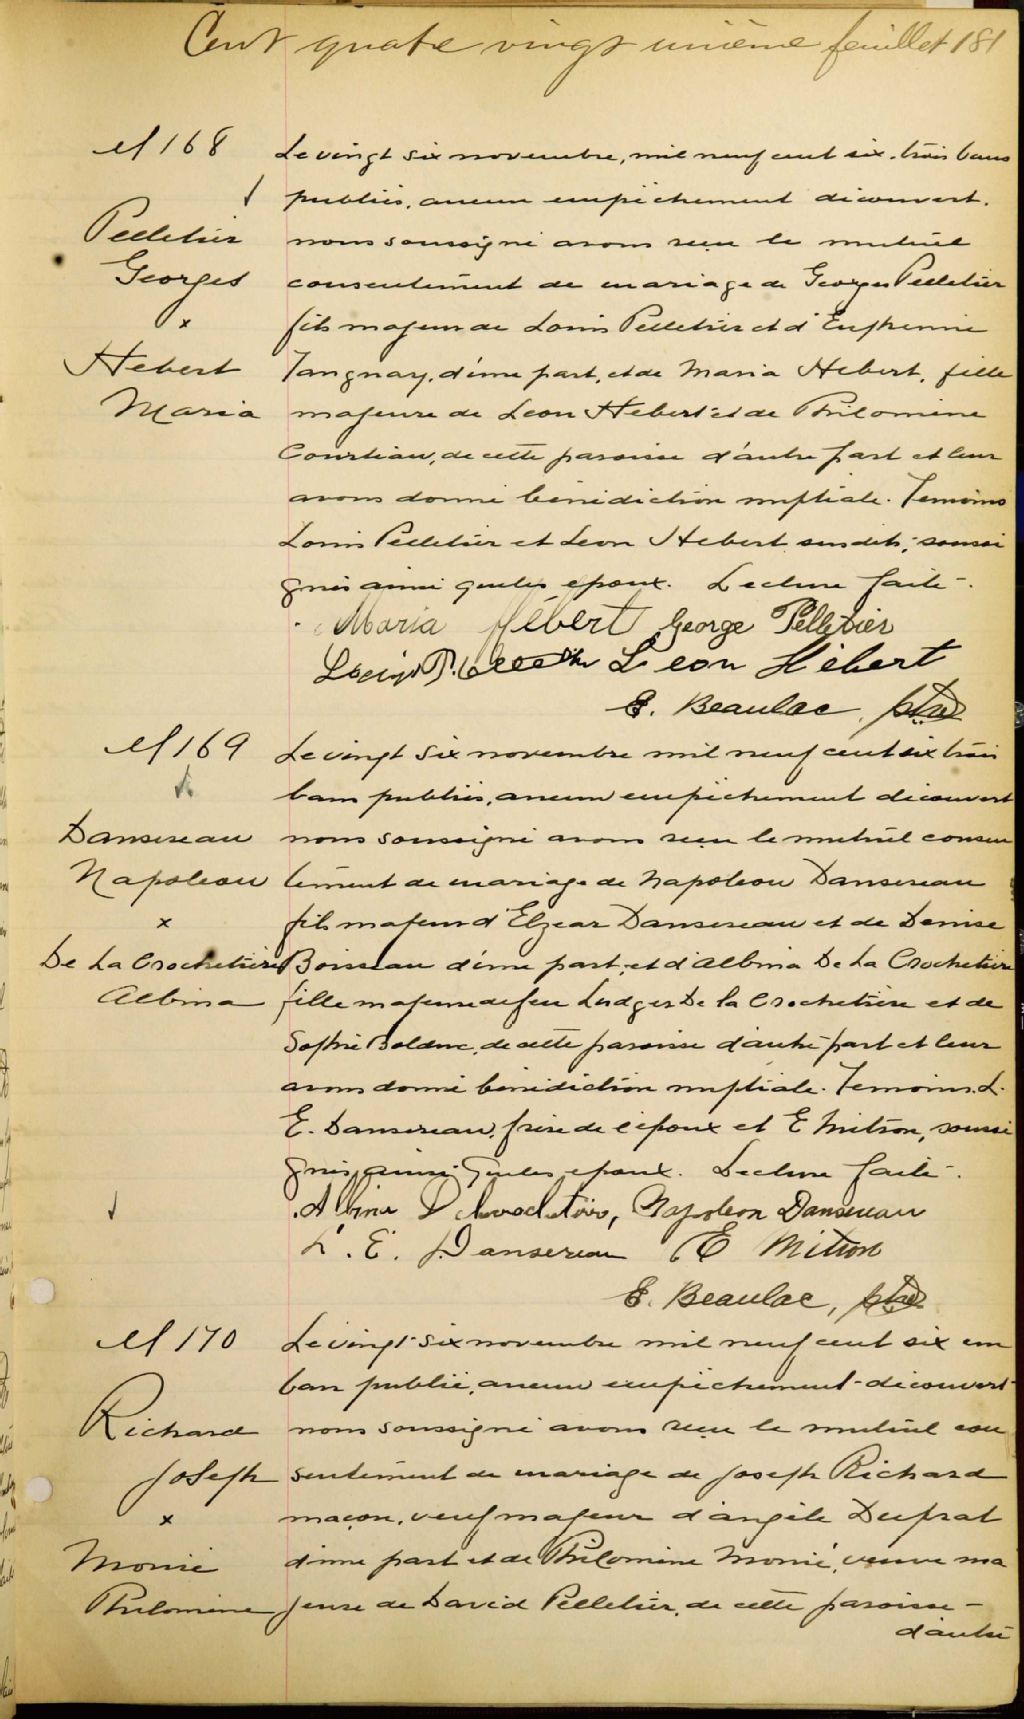 Cent quatre vingt unième feuillet 181
M 168
Pelletier
Georges
x
Hebert
Maria
Le vingt six novembre, mil neuf cent six, trois bans
publiés, aucun empêchement découvert,
nous soussigné avons reçu le mutuel
consentement de mariage de Georges Pelletier
fils majeur de Louis Pelletier et d'Euphemie
Tanguay, d'une part, et de Maria Hebert, fille
majeure de Leon Hebert et de Philomine
de cette paroisse d'autre part et leur
avons donné bénédiction nuptiale. Temoins
Louis Pelletier et Leon Hebert susdits, soussi
gnés ainsi que les epoux. Lecture faite.
Maria Hébert George Pelletier
Leon Hébert
E. Beaulac, ptre
M 169
Dansereau
Napoleon
x
De La Crochetière
Albina
Le vingt six novembre mil neuf cent six trois
bans publiés, aucun empêchement découvert
nous soussigné avons reçu le mutuel consen
tement de mariage de Napoleon Dansereau
fils majeur d'Elzear Dansereau et de Denise
Boisseau d'une part, et d'Albina De La Crochetière
fille majeure de feu Ludger De la Crochetière et de
Sophie Bolduc, de cette paroisse d'autre part et leur
avons donné bénédiction nuptiale. Temoins. L.
E. Dansereau, frère de l'époux et E Mitron, soussi
gnés, ainsi que les epoux. Lecture faite.
Albina Napoleon Dansereau
L. E. Dansereau E Mitron
E. Beaulac, ptre
M 170
Richard
Joseph
x
Monié
Philomine
Le vingt-six novembre mil neuf cent six un
ban publié, aucun empêchement découvert
nous soussigné avons reçu le mutuel con
sentement de mariage de Joseph Richard
maçon, veuf majeur d'angèle Duprat
d'une part et de Philomine Monié, veuve ma
jeure de David Pelletier, de cette paroisse -
d'autre